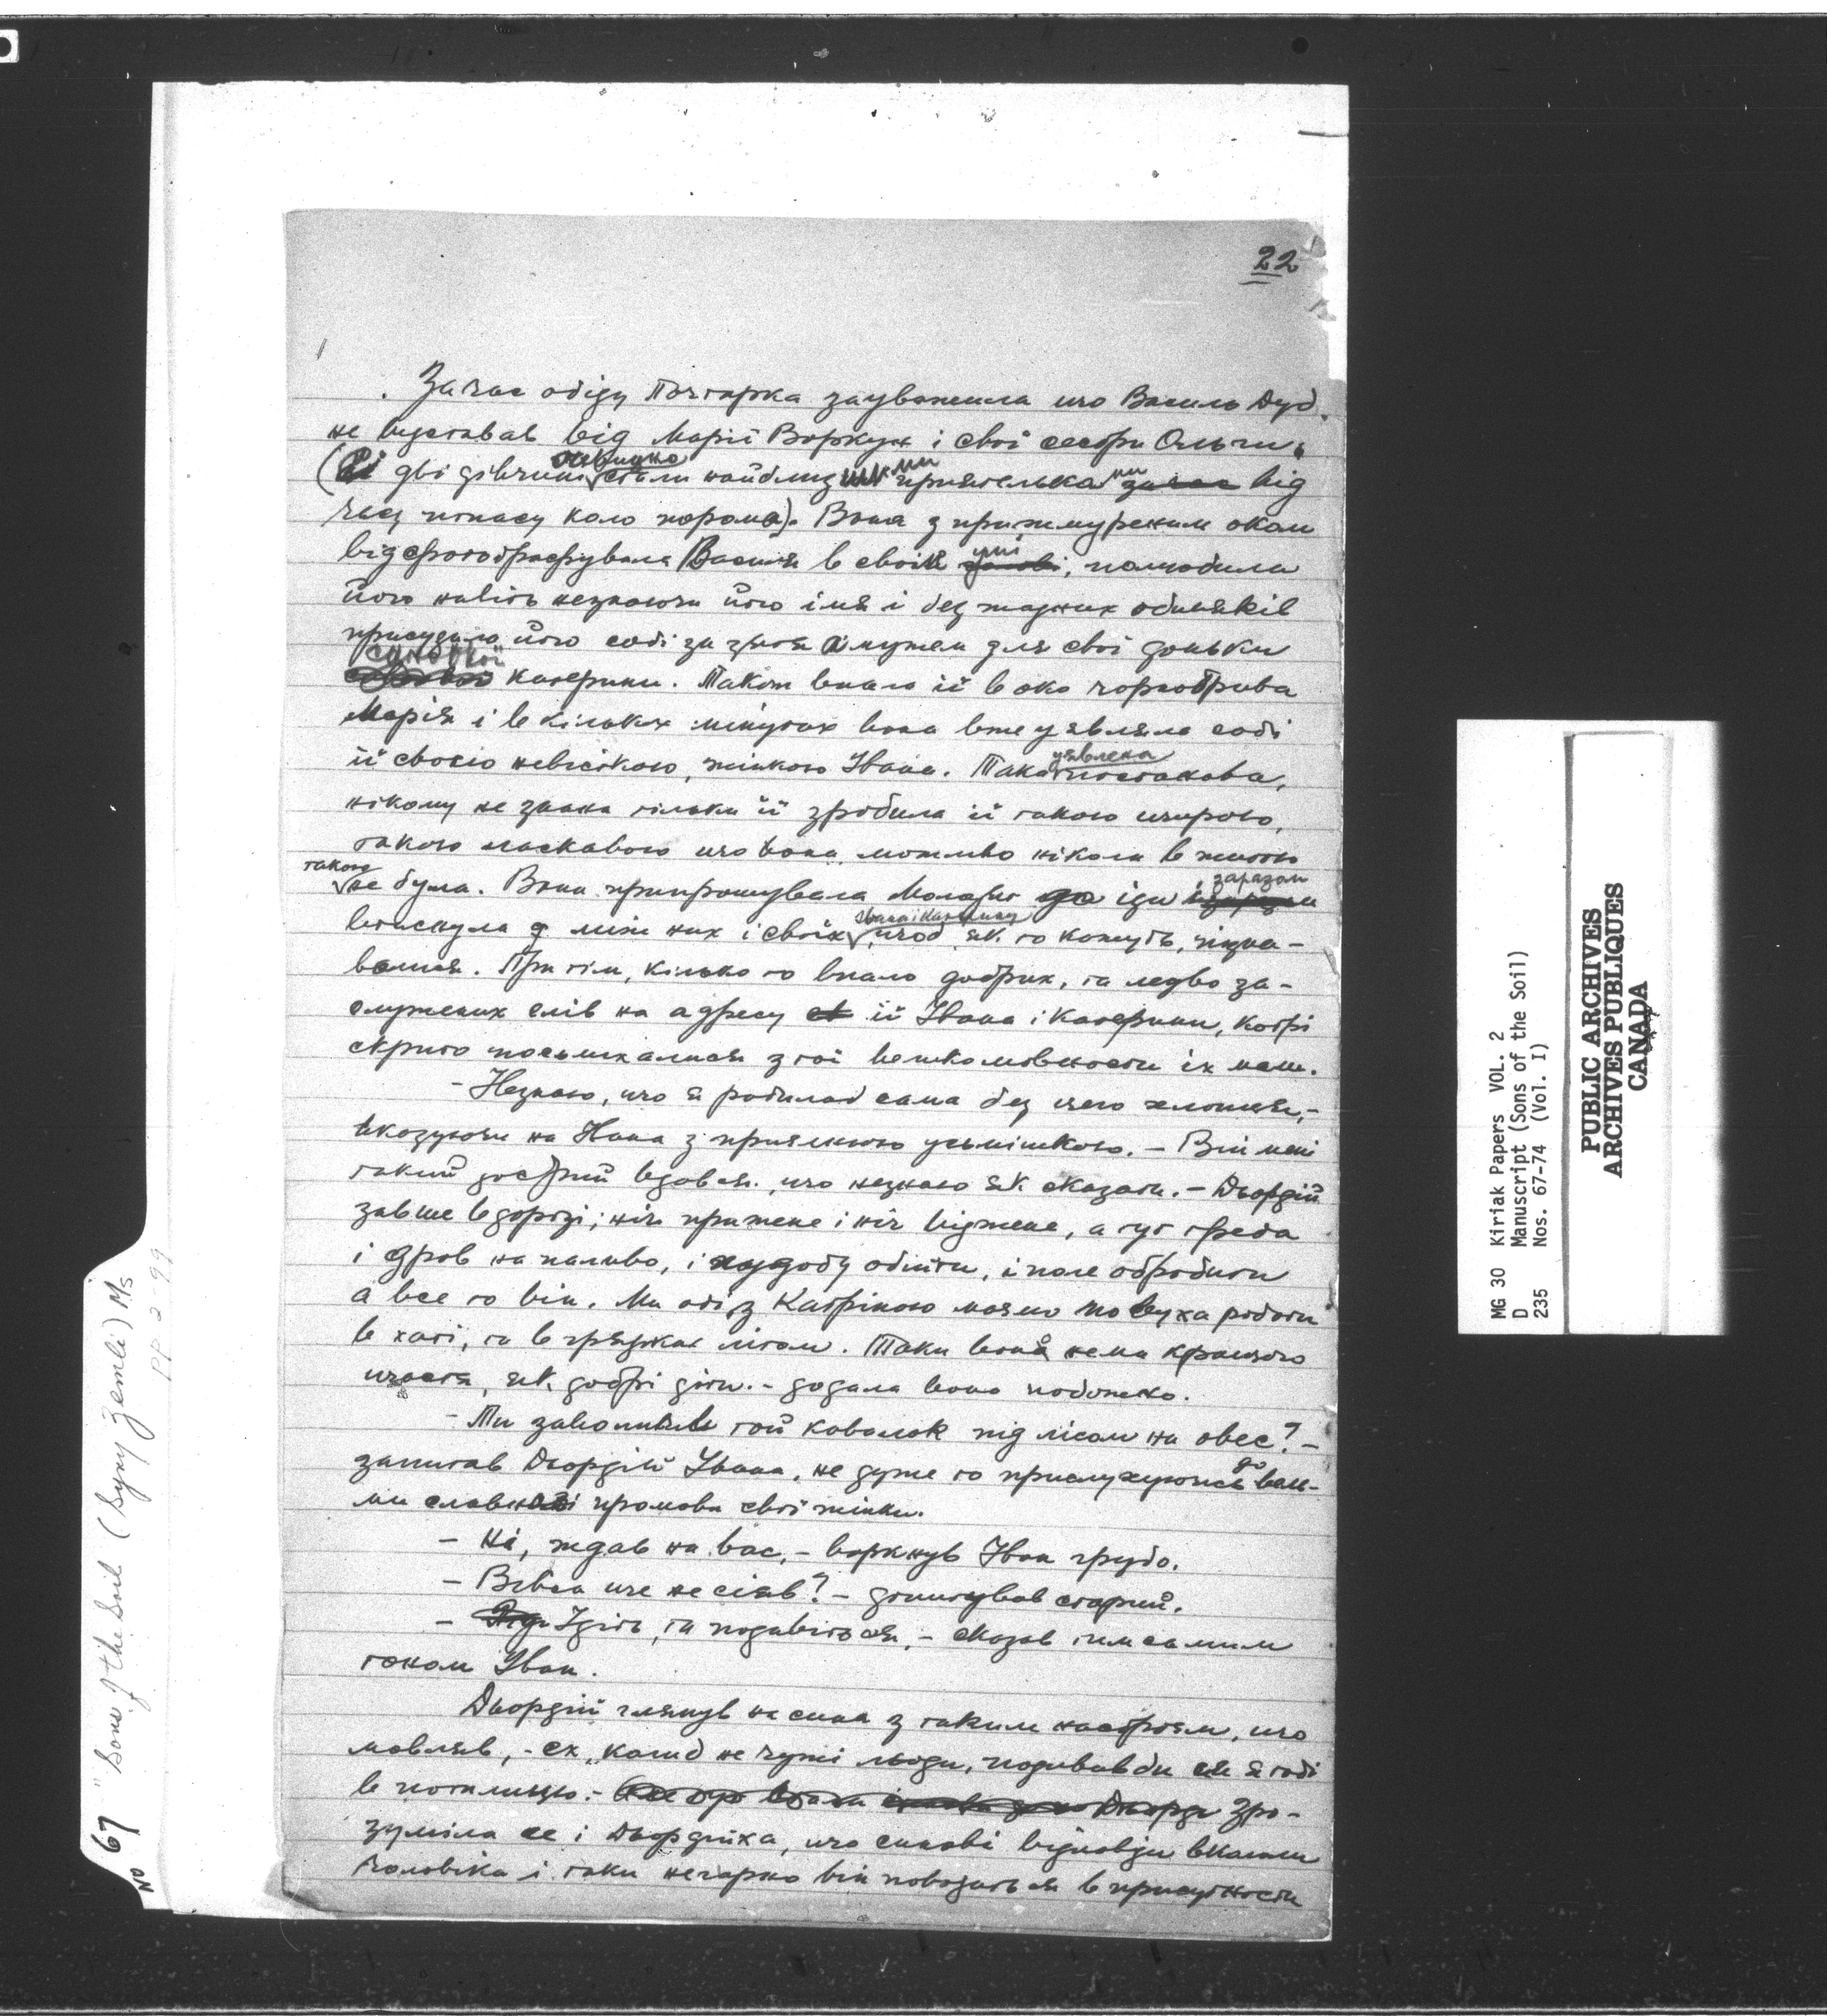 22
За час обіду Почтарка зауважила що Василь Дуб
не вуставав від Марії Воркун і свої сестри Ольги.
(Ві дві дівчини очевидно стали найблизшими приятельками від
часу попасу коло порома). Вона з прижмуреним оком
відфотографувала Василя в своїй умі, полюбила
його навіть незнаючи його імя і без жадних обиняків
присудила його собі за зятя а мужем для свої доньки
Катерини. Також впало її в око чорнобрива
Марія і в кількох мінутах вона вже уявляла собі
її своєю невісткою, жінкою Івана. Така уявлена постанова,
нікому не знана тільки її зробила її такою щирою,
такою ласкавою що вона можливо ніколи в життю
такою не була. Вона припрошувала молодіж до їди і заразом
втиснула між них і своїх Івана і Катерину щоб як то кажуть, пізна-
валися. При тім, кілько то впало добрих, та ледво за-
служених слів на адресу її Івана і Катерини, котрі
скрито посьмихалися з тої велемовности їх мами.
- Незнаю, що я робилаб сама без цего хлопця,-
вказуючи на Івана з приязною усьмішкою. - Він мені
такий добрий вдався, що незнаю як сказати. - Дьордій
завше в дорозі; ніч прижене і ніч віджене, а тут треба
і дров на паливо, і худобу обійти, і поле обробити
а все то він. Ми обі з Катріною маємо по вуха роботи
в хаті, та в грядках літом. Таки вона нема кращого
щастя, як добрі діти. - додала вона побожно.
- Ти заволочив той кавалок під лісом на овес? -
запитав Дьордій Івана, не дуже то прислухуючись до вель-
ми славної промови свої жінки.
- Ні, ждав на вас, - воркнув Іван грубо.
- Вівса ще не сіяв? - допитував старий.
- Ідіть, та подивіться, - сказав тим самим
тоном Іван.
Дьордій глянув на сина з таким настроям, що
мовляв, - ех, колиб не чужі люди, подивив би ся я тобі
в потилицю. - Зро-
зуміла се і Дьордіїха, що синові відповіди вкололи
чоловіка і таки негарно він поводиться в присутности
No 67 "Sons of the Soil (Syny Zemli) Ms
PP 2-99
MG 30 Kiriak Papers VOL. 2
D Manuscript (Sons of the Soil)
235 Nos. 67-74 (Vol. I)
PUBLIC ARCHIVES
ARCHIVES PUBLIQUES
CANADA